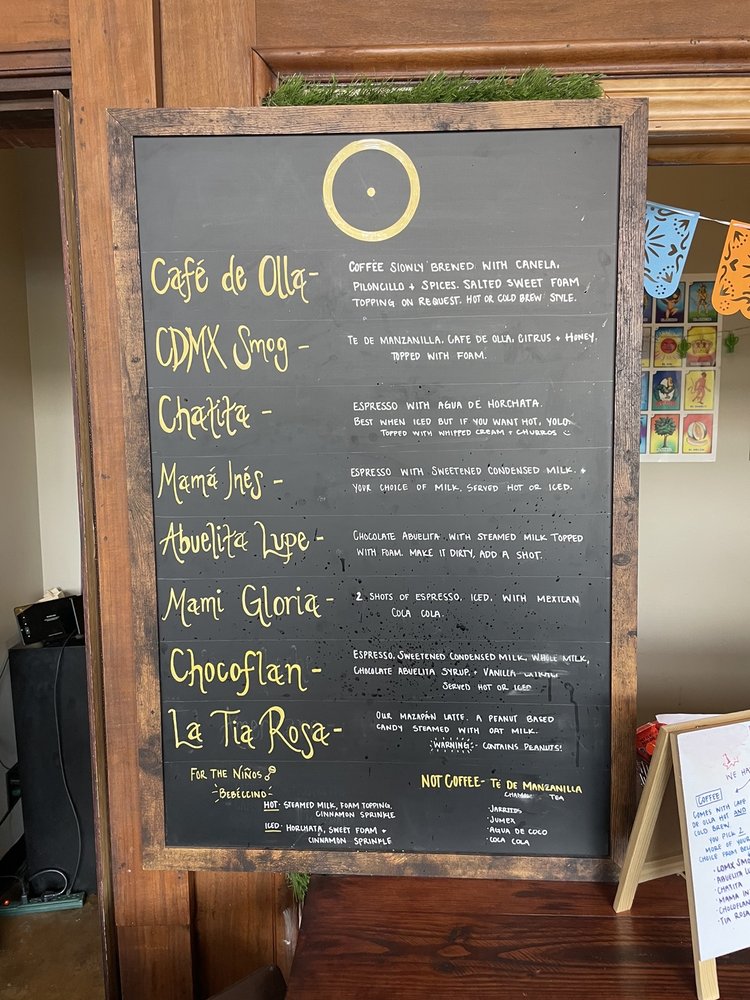 Café de Olla-
COFFEE SLOWLY BREWED WITH CANELA,
PILONCILLO + SPICES. SALTED SWEET FOAM
TOPPING ON REQUEST. HOT OR COLD BREW STYLE.
CDMX Smog -
TE DE MANZANILLA, CAFE DE OLLA, CITRUS + HONEY.
TOPPED WITH FOAM.
Chatita -
ESPRESSO WITH AGUA DE HORCHATA.
BEST WHEN ICED BUT IF YOU WANT HOT, YOLO.
TOPPED WITH WHIPPED CREAM + CHURROS
Mamá Inés -
ESPRESSO WITH SWEETENED CONDENSED MILK +
YOUR CHOICE OF MILK. SERVED HOT OR ICED.
Abuelita Lupe -
CHOCOLATE ABUELITA WITH STEAMED MILK TOPPED
WITH FOAM. MAKE IT DIRTY, ADD A SHOT.
Mami Gloria -
2 SHOTS OF ESPRESSO, ICED, WITH MEXICAN
COCA COLA.
Chocoflan -
ESPRESSO, SWEETENED CONDENSED MILK, WHOLE MILK,
CHOCOLATE ABUELITA SYRUP, + VANILLA
SERVED HOT OR ICED
La Tia Rosa-
OUR MAZAPÁN LATTE. A PEANUT BASED
CANDY STEAMED WITH OAT MILK.
WARNING: CONTAINS PEANUTS!
FOR THE NIÑOS
"BEBÉCCINO"
HOT: STEAMED MILK, FOAM TOPPING,
CINNAMON SPRINKLE
ICED: HORCHATA, SWEET FOAM +
CINNAMON SPRINKLE
NOT COFFEE- TÉ DE MANZANILLA
TEA
·JARRITOS
·JUMEX
·AGUA DE COCO
·COCA COLA
WE HA
COFFEE
COMES WITH CAFE
DE OLLA HOT AND
COLD BREW.
YOU PICK 2
MORE OF YOUR
CHOICE FROM BEL
·CDMX SMO
·ABUELITA LU
·CHATITA
·MAMA IN
·CHOCOFLAN
·TIA ROSA